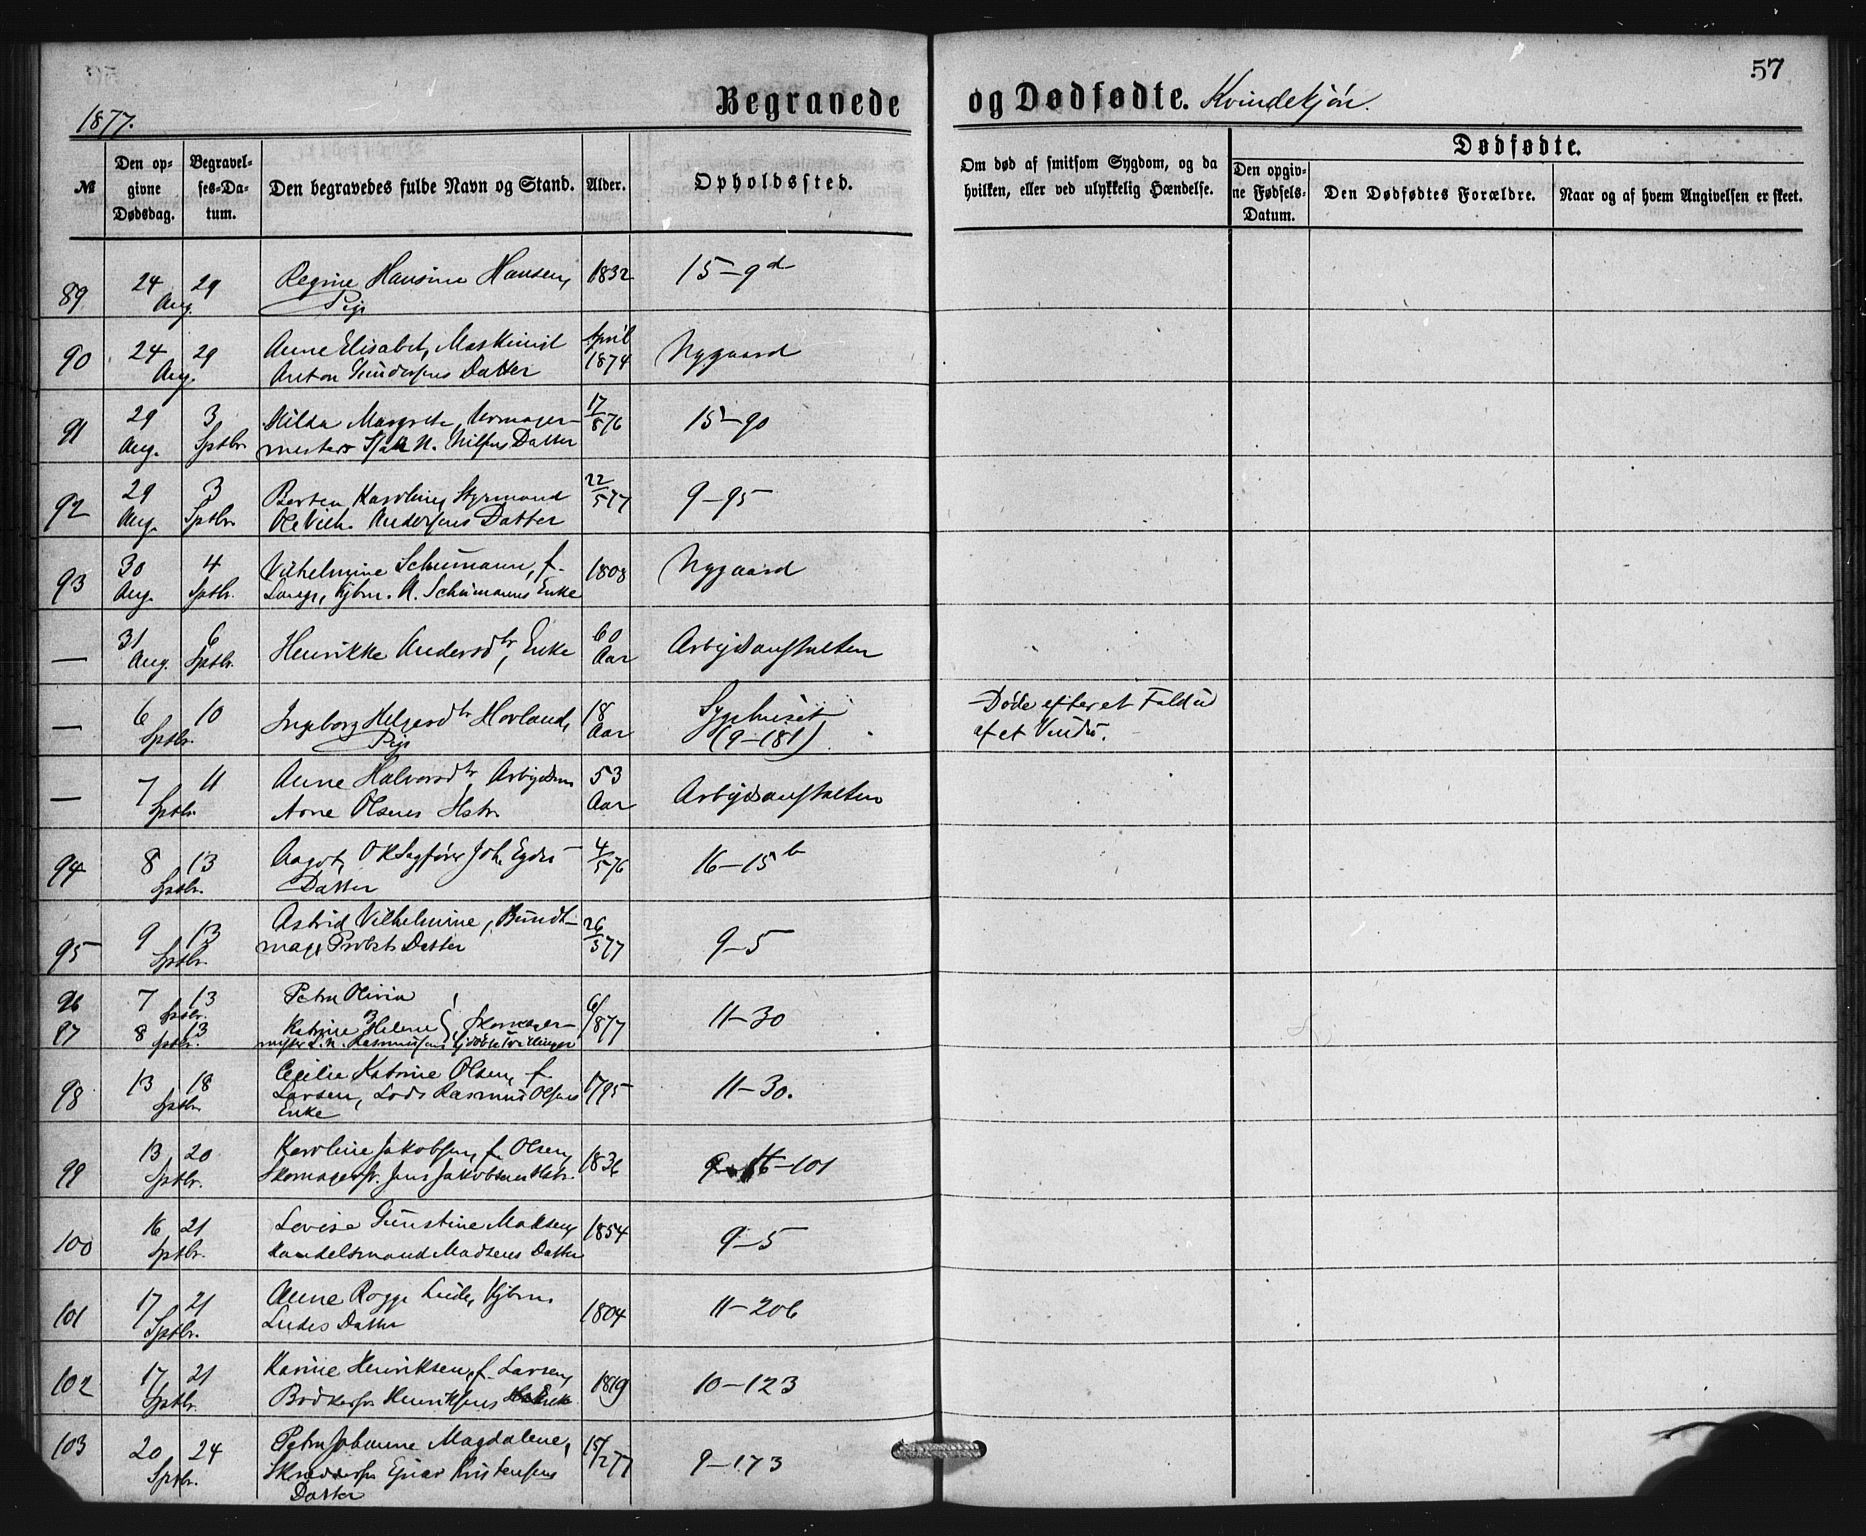 1877.
Begravede og Dødfødte. Kvindekjön.
57
№
Den opgivne Dødsdag.
Begravelses-Datum.
Den begravedes fulde Navn og Stand.
Alder.
Opholdssted.
Om død af smitsom Sygdom, og da hvilken, eller ved ulykkelig Hændelse.
Dødfødte.
Den opgivne Fødsels-Datum.
Den Dødfødtes Forældre.
Naar og af hvem Angivelsen er skeet.
89 24 Aug. 29 Regine Hansine Hansen, 1832 15-9d
Pige
90 24 Aug. 29 Anne Elisabet, Maskinist April 1874 Nygaard
Anton Gundersens Datter
91 29 Aug. 3 Sptbr. Hilda Margrete, Urmager- 17/8 76 15-90
mester N. Nilsens Datter
92 29 Aug. 3 Sptbr. Berta Karoline, Styrmand 22/5 77 9-95
Ole Vilh. Andersens Datter
93 30 Aug. 4 Sptbr. Vilhelmine Schumann, f. 1808 Nygaard
Lange, Kjbm. A. Schumanns Enke
— 31 Aug. 6 Sptbr. Henrikke Andersdtr, Enke 60 Aar Arbejdsanstalten
— 6 Sptbr. 10 Ingeborg Helgesdtr Hovland, 18 Aar Sygehuset Døde efter et Fald ud
Pige (9-181) af et Vindu.
— 7 Sptbr. 11 Anne Halvorsdtr, Arbejdsm 53 Aar Arbejdsanstalten
Arne Olsens Hstr.
94 8 Sptbr. 13 Aagot, O R Sagfører Joh. Egdes 4/5 76 16-15b
Datter
95 9 Sptbr. 13 Astrid Vilhelmine, Bundt- 26/3 77 9-5
mag. Probsts Datter
96 7 Sptbr. 13 Petra Olivia 6/8 77 11-30
97 8 Sptbr. 13 Katrine Helene, Skomager-
mester L. N. Rasmussens Tvillinger
98 13 Sptbr. 18 Cecilie Katrine Olsen, f. 1795 11-30.
Larsen, Lods Rasmus Olsens
Enke
99 13 Sptbr. 20 Karoline Jakobsen, f. Olsen, 1836 16-101
Skomagersv. Jens Jakobsens Hstr.
100 16 Sptbr. 21 Lovise Gunstine Madsen, 1854 9-5
Handelsmand Madsens Datter
101 17 Sptbr. 21 Anne Rogge Lude, Kjbm. 1804 11-206
Ludes Datter
102 17 Sptbr. 21 Karine Henriksen, f. Larsen, 1819 10-123
Bødkersv. Henriksens Enke
103 20 Sptbr. 24 Petra Johanne Magdalene, 15/2 77 9-173
Skreddersv. Ejnar Kristensens
Datter